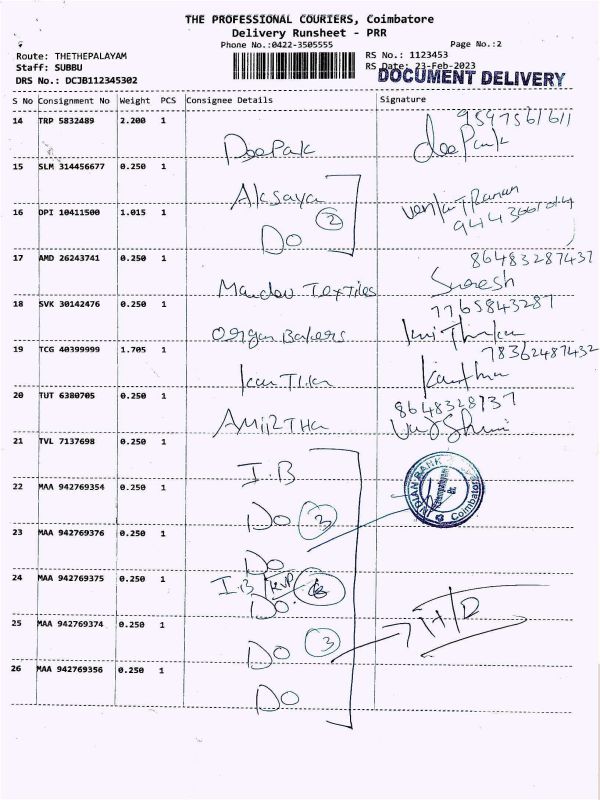 THE PROFESSIONAL COURIERS, Coimbatore
Delivery Runsheet - PRR
Phone No.:0422-3505555
Page No.:2
Route: THETHEPALAYAM
RS No.: 1123453
Staff: SUBBU
RS Date: 23-Feb-2023
DRS No.: DCJB112345302
DOCUMENT DELIVERY
S No Consignment No Weight PCS Consignee Details Signature
14 TRP 5832489 2.200 1
DeePak
deePauk
15 SLM 314456677 0.250 1
Aksaya
16 DPI 10411500 1.015 1
2
Do
17 AMD 26243741 0.250 1
86483287437
Suresh
18 SVK 30142476 0.250 1
7765843287
Organ Bakers
19 TCG 40399999 1.705 1
78362487432
20 TUT 6380705 0.250 1
8648328737
21 TVL 7137698 0.250 1
I.B
INDIAN BANK
Coimbatore
22 MAA 942769354 0.250 1
Do 3
23 MAA 942769376 0.250 1
Do
24 MAA 942769375 0.250 1
I.B KVP
Do
25 MAA 942769374 0.250 1
H/D
Do 3
26 MAA 942769356 0.250 1
Do